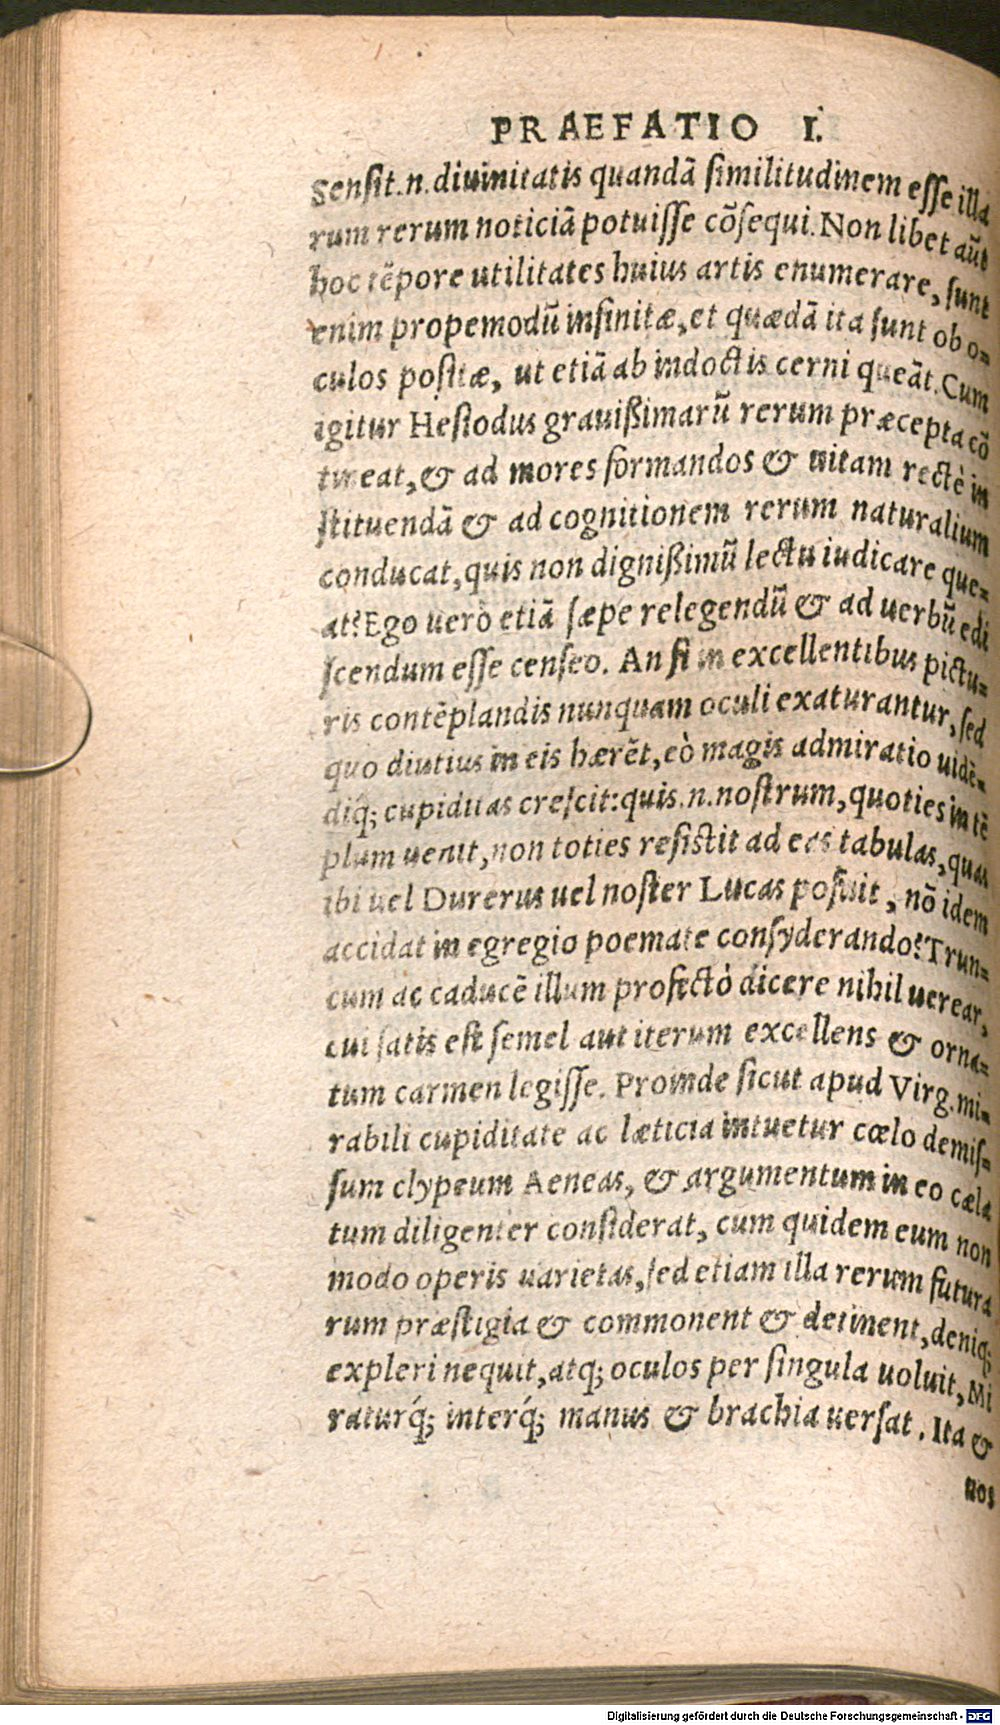 PRAEFATIO I.
Sensit.n.diuinitatis quandā similitudinem esse illa
rum rerum noticiā potuisse cōsequi.Non libet aūt
hoc tēpore utilitates huius artis enumerare, sunt
enim propemodū infinitæ,et quædā ita sunt ob o-
culos positæ, ut etiā ab indoctis cerni queāt.Cum
igitur Hesiodus grauißimarū rerum præcepta cō
tineat,& ad mores formandos & uitam rectè in
stituendā & ad cognitionem rerum naturalium
conducat,quis non dignißimū lectu iudicare que-
at?Ego uerò etiā sæpe relegendū & ad uerbū edi
scendum esse censeo. An si in excellentibus pictu-
ris contēplandis nunquam oculi exaturantur, sed
quo diutius in eis hærēt,eò magis admiratio uidē-
diq́; cupiditas crescit:quis.n.nostrum,quoties in tē
plum uenit,non toties resistit ad eas tabulas,quas
ibi uel Durerus uel noster Lucas posuit, nō idem
accidat in egregio poemate consyderando?Trun-
cum ac caducē illum profectò dicere nihil uerear,
cui satis est semel aut iterum excellens & orna-
tum carmen legisse. Proinde sicut apud Virg.mi-
rabili cupiditate ac læticia intuetur cœlo demis-
sum clypeum Aeneas, & argumentum in eo cæla
tum diligenter considerat, cum quidem eum non
modo operis uarietas,sed etiam illa rerum futura
rum præstigia & commonent & detinent,deniq;
expleri nequit,atq; oculos per singula uoluit, Mi
raturq́; interq́; manus & brachia uersat. Ita &
nos
Digitalisierung gefördert durch die Deutsche Forschungsgemeinschaft - DFG